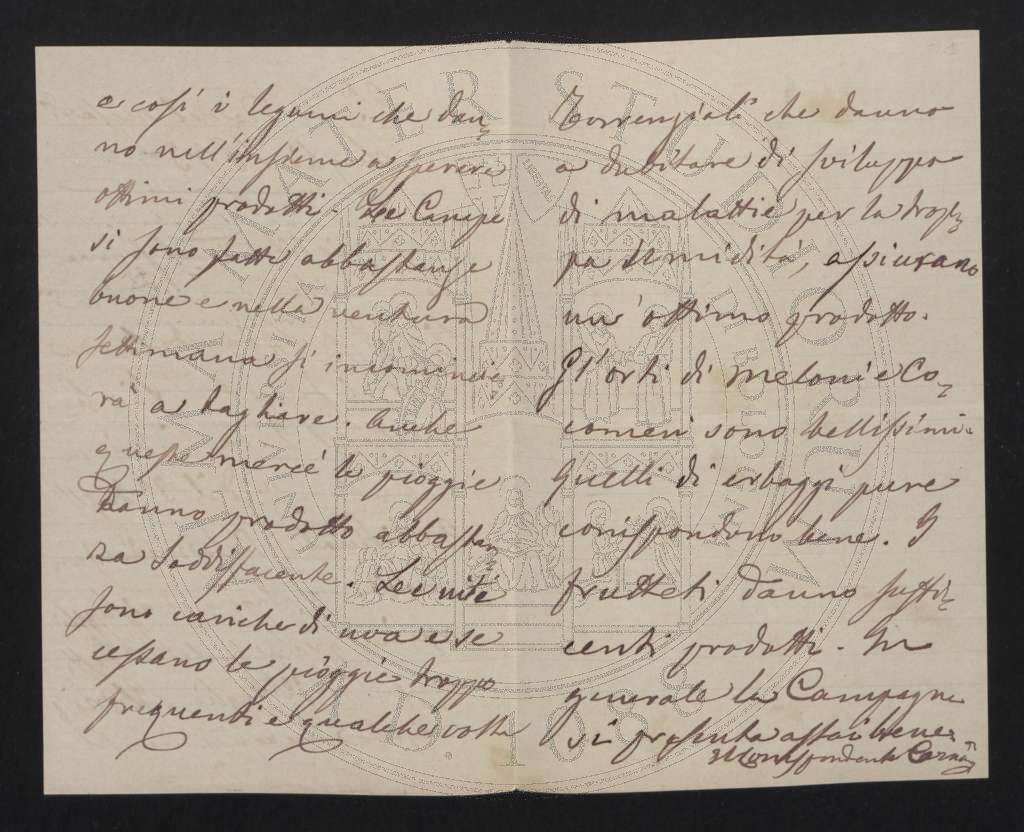 e così i legumi che dan=
no nell'insieme a sperare
ottimi prodotti. Le Canepe
si sono fatte abbastanze
buone e nella ventura
settimana si incomincie
rà a tagliare. Anche
queste mercé le pioggie
danno prodotto abbastan
za soddisfacente. Le viti
sono cariche di uva e se
cessano le pioggie troppo
frequenti e qualche volta
Torrenziali che danno
a dubitare di sviluppo
di malattie per la trop=
pa Umidità, assicurano
un'ottimo prodotto.
Gl'orti di Meloni e Co=
comeri sono bellissimi.
Quelli di erbaggi pure
corrispondono bene. I
frutteti danno suffi=
centi prodotti. In
generale la Campagna
si presenta assai bene.
Il Corrispondente
ALMA MATER STUDIORUM
A.D. 1088
LIBERTAS